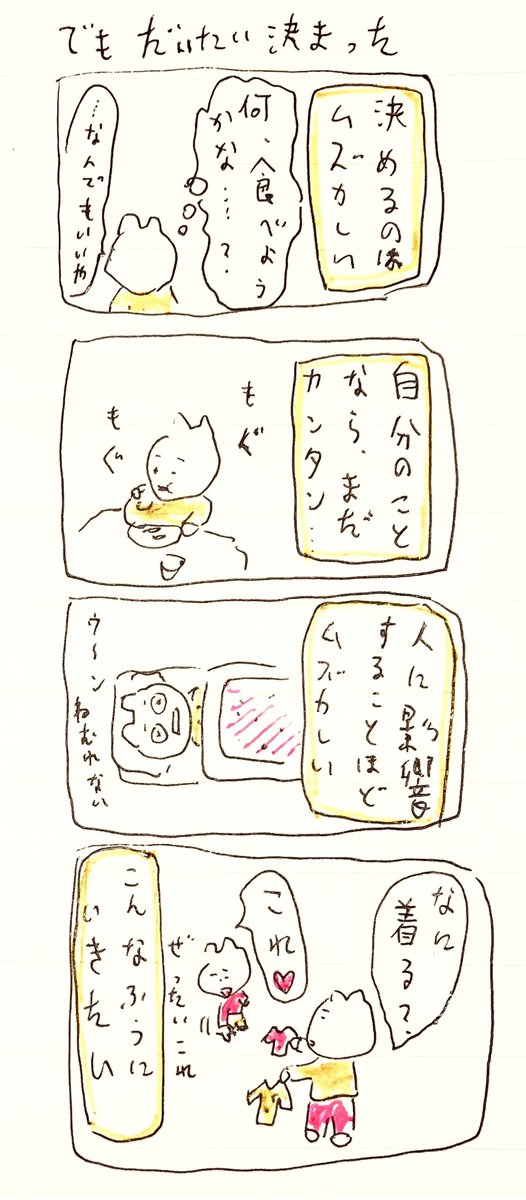 でもだいたい決まった
決めるのは
ムズカしい
何、食べよう
かな……?
…なんでもいいや
自分のこと
なら、まだ
カンタン…
もぐ
もぐ
人に影響
することほど
ムズカしい
ウ〜ン
ねむれない
なに
着る?
これ
ぜったいこれ
こんなふうに
いきたい